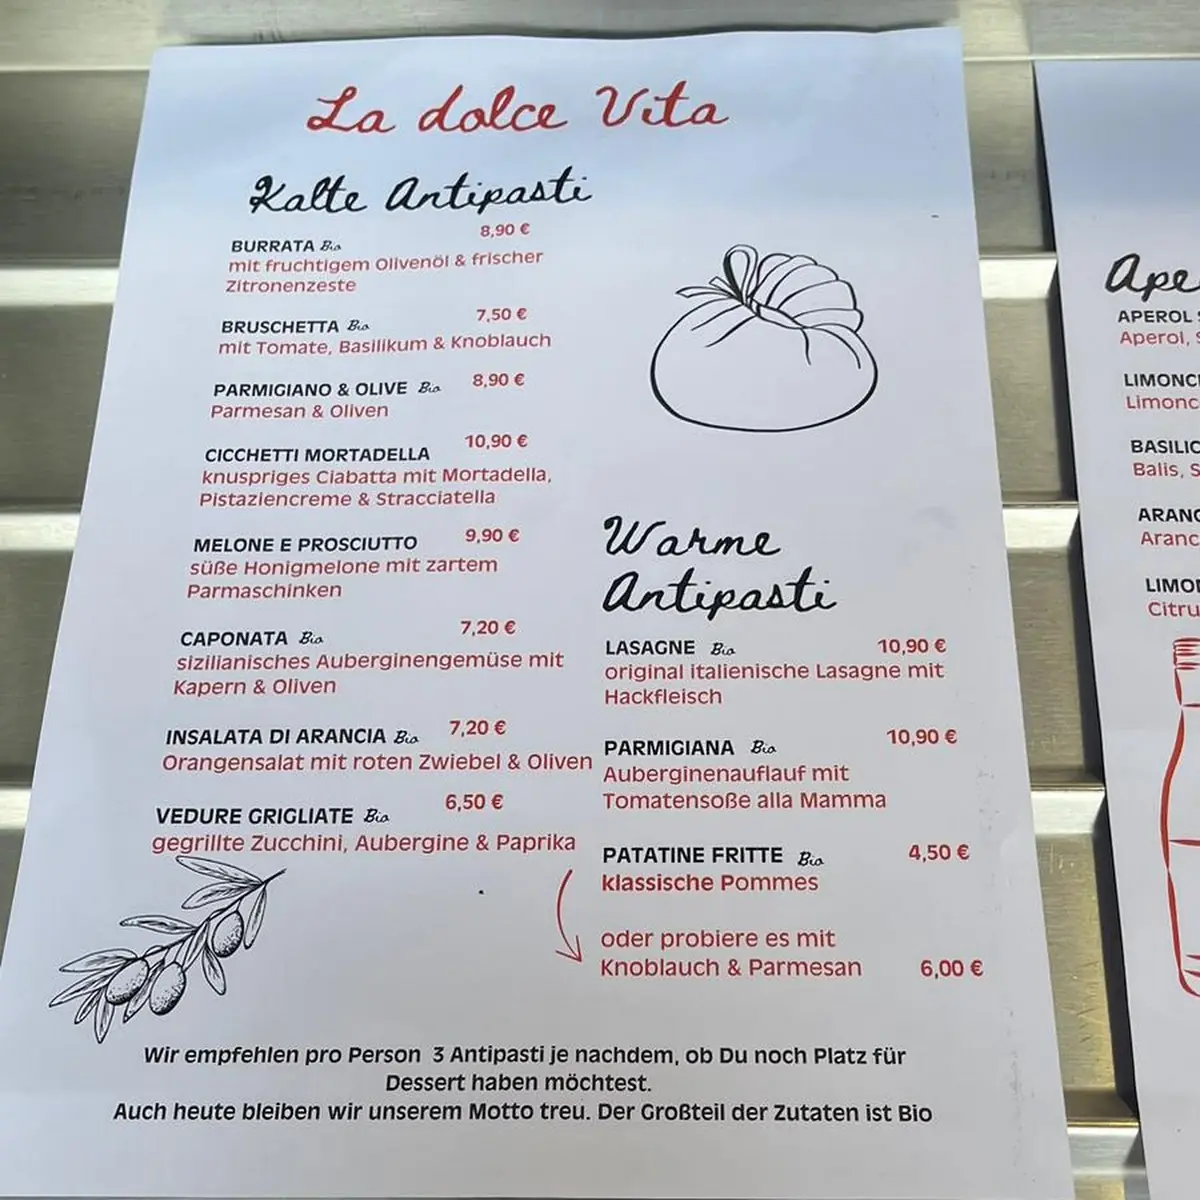 La dolce Vita
Kalte Antipasti
BURRATA Bio 8,90 €
mit fruchtigem Olivenöl & frischer
Zitronenzeste
BRUSCHETTA Bio 7,50 €
mit Tomate, Basilikum & Knoblauch
PARMIGIANO & OLIVE Bio 8,90 €
Parmesan & Oliven
CICCHETTI MORTADELLA 10,90 €
knuspriges Ciabatta mit Mortadella,
Pistaziencreme & Stracciatella
MELONE E PROSCIUTTO 9,90 €
süße Honigmelone mit zartem
Parmaschinken
CAPONATA Bio 7,20 €
sizilianisches Auberginengemüse mit
Kapern & Oliven
INSALATA DI ARANCIA Bio 7,20 €
Orangensalat mit roten Zwiebel & Oliven
VEDURE GRIGLIATE Bio 6,50 €
gegrillte Zucchini, Aubergine & Paprika
Warme
Antipasti
LASAGNE Bio 10,90 €
original italienische Lasagne mit
Hackfleisch
PARMIGIANA Bio 10,90 €
Auberginenauflauf mit
Tomatensoße alla Mamma
PATATINE FRITTE Bio 4,50 €
klassische Pommes
oder probiere es mit
Knoblauch & Parmesan 6,00 €
Wir empfehlen pro Person 3 Antipasti je nachdem, ob Du noch Platz für
Dessert haben möchtest.
Auch heute bleiben wir unserem Motto treu. Der Großteil der Zutaten ist Bio
Ape
APEROL
Aperol,
LIMONC
Limonc
BASILIC
Balis, S
ARANC
Aranc
LIMO
Citru